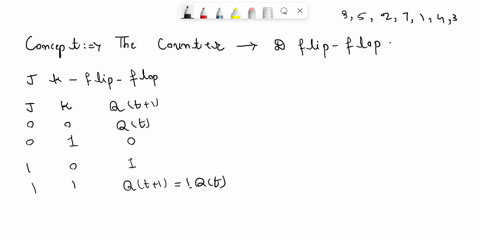 3, 5, 2, 7, 1, 4, 3
Concept:=> The Counter → D flip-flop.
J K - flip-flop
J K Q(t+1)
0 0 Q(t)
0 1 0
1 0 1
1 1 Q(t+1) = !Q(t)